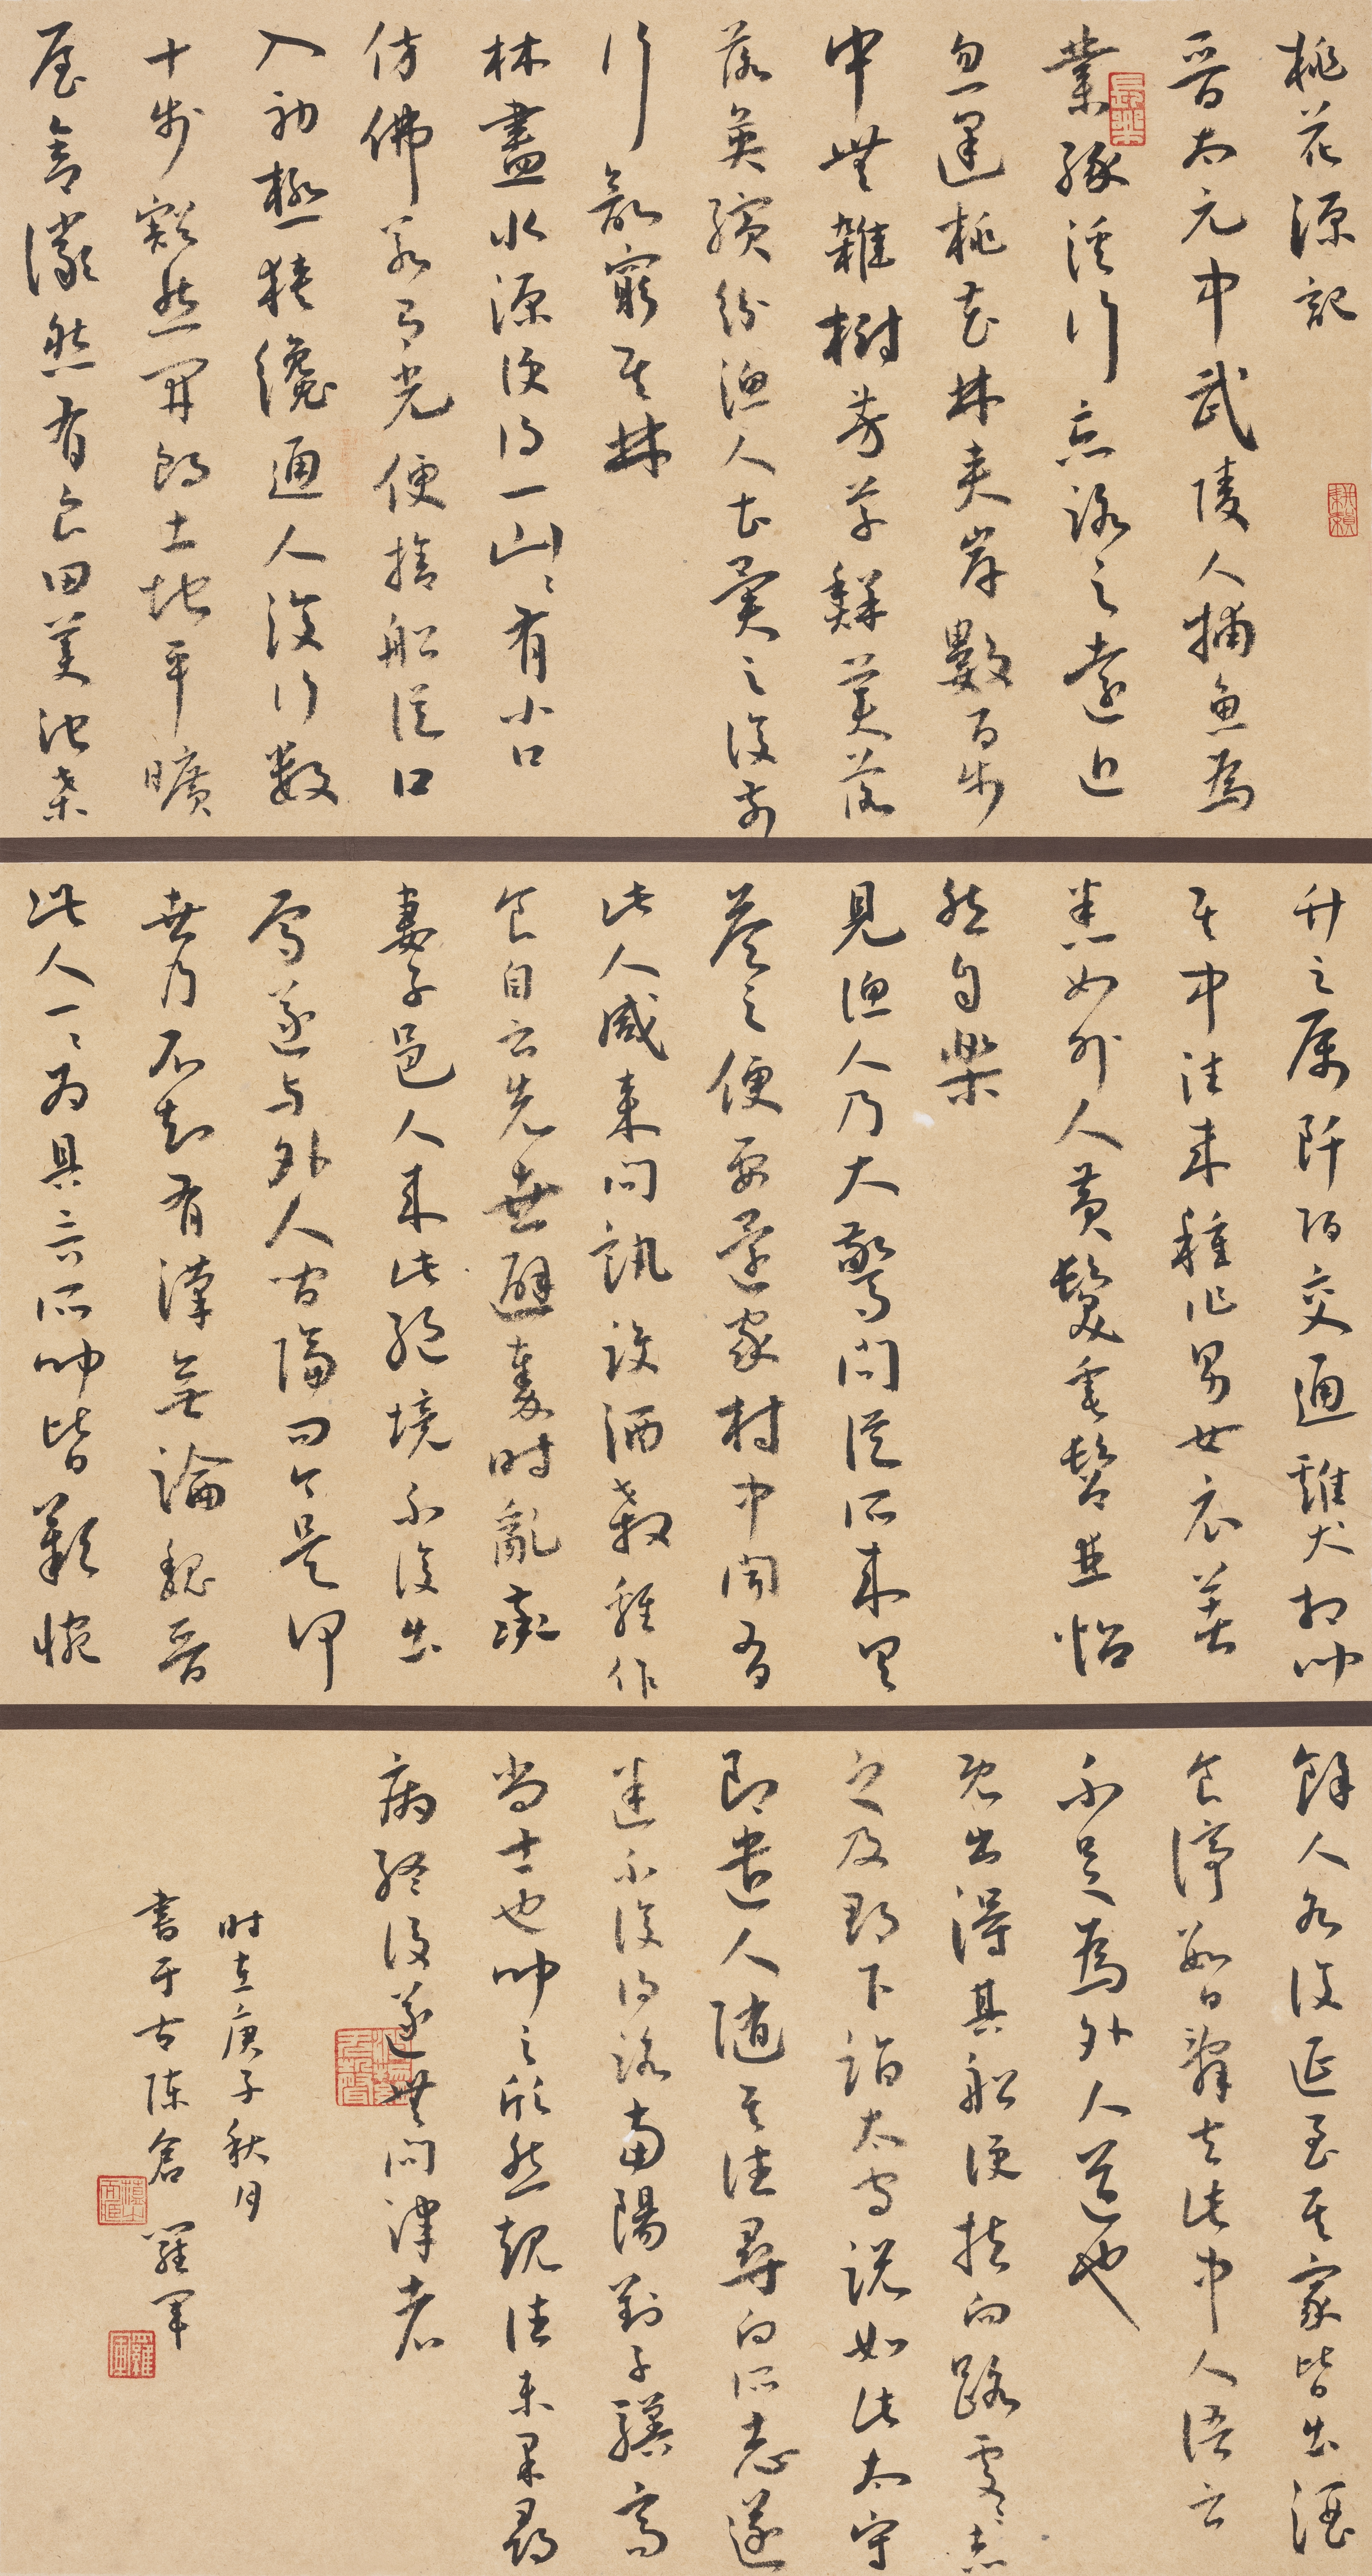 桃花源記
晉太元中武陵人捕魚為
業緣溪行忘路之遠近
忽逢桃花林夹岸數百步
中無雜樹芳草鮮美落
落英繽紛漁人甚異之復前
行欲窮其林
林盡水源便得一山山有小口
仿佛若有光便捨船從口
入初極狹纔通人復行数
十步豁然開朗土地平曠
屋舍儼然有良田美池桑
竹之属阡陌交通雞犬相聞
其中往来種作男女衣著
悉如外人黄髮垂髫並怡
然自樂
見漁人乃大驚問從所来具
答之便要還家村中聞有
此人咸来問訊設酒殺雞作
食自云先世避秦时亂率
妻子邑人来此絕境不復出
焉遂与外人間隔問今是何
世乃不知有漢無論魏晉
此人一一為具言所聞皆歎惋
餘人各復延至其家皆出酒
食停數日辭去此中人語云
不足為外人道也
既出得其船便扶向路處處志
之及郡下詣太守說如此太守
即遣人隨其往尋向所志遂
迷不復得路南陽劉子驥高
尚士也聞之欣然規往未果尋
病終後遂無問津者
时在庚子秋月
書于古陳倉 羅軍